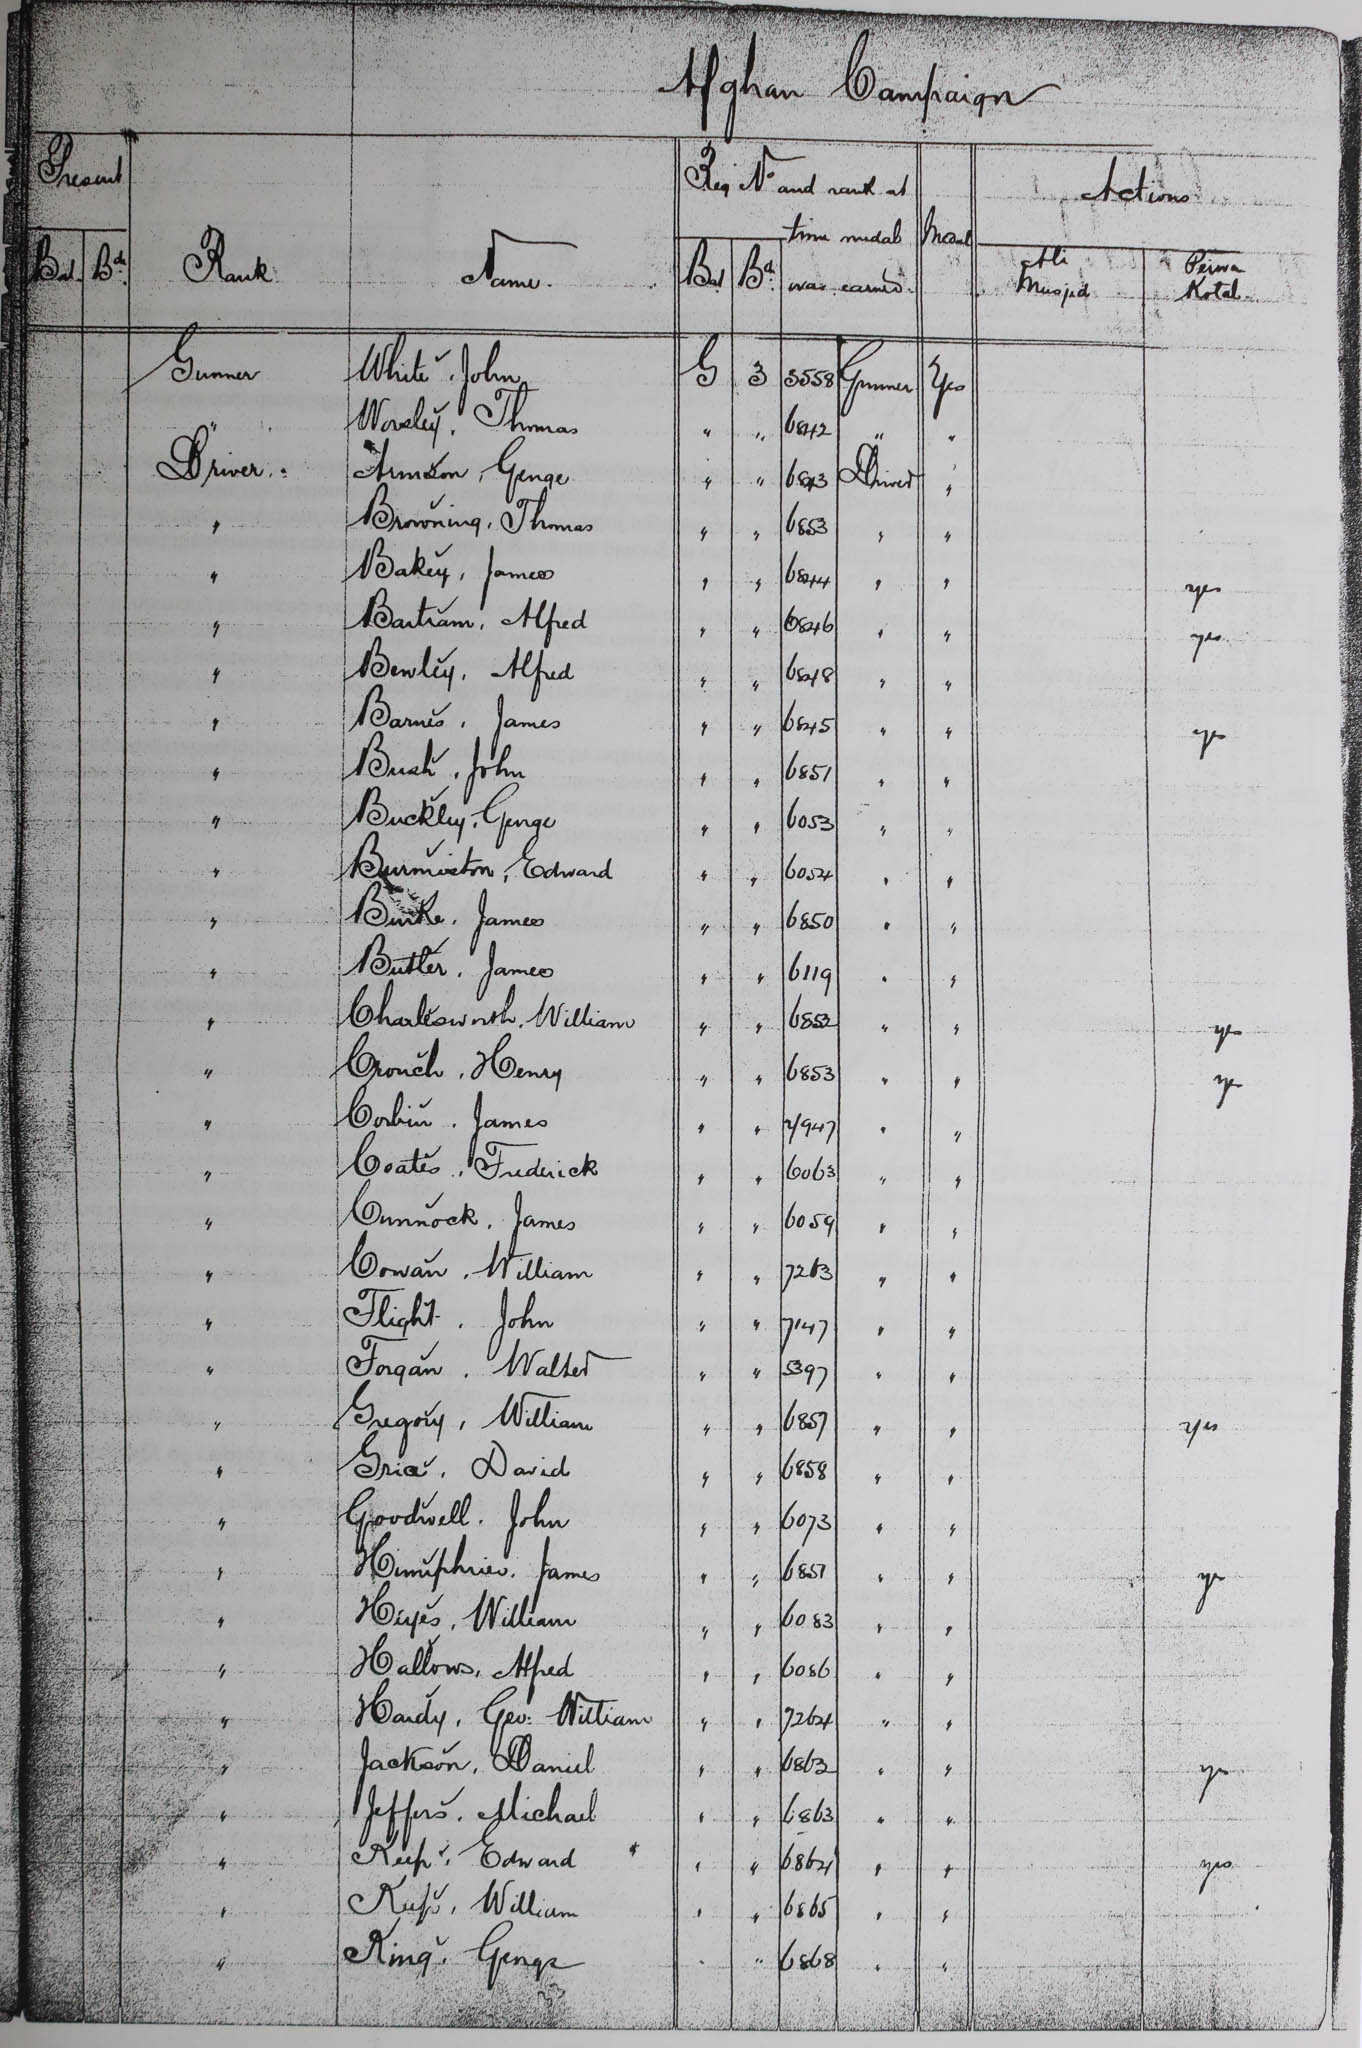 Afghan Campaign
Present Reg No and rank at time medal was earned. Medal Actions
Bat. Bde. Rank Name. Bat Bde. Ali Musjid Peiwa Kotal.
Gunner White, John G 3 3558 Gunner Yes
" Worsley, Thomas " " 6842 " "
Driver Armson, George " " 6843 Driver "
" Browning, Thomas " " 6853 " "
" Bakey, James " " 6844 " " yes
" Bartram, Alfred " " 6846 " " yes
" Bewley, Alfred " " 6848 " "
" Barnes, James " " 6845 " " yes
" Bush, John " " 6851 " "
" Buckley, George " " 6053 " "
" Burmiston, Edward " " 6054 " "
" Burke, James " " 6850 " "
" Butler, James " " 6119 " "
" Charlesworth, William " " 6852 " " yes
" Crouch, Henry " " 6853 " " yes
" Corbin, James " " " "
" Coates, Frederick " " 6063 " "
" Cunnock, James " " 6059 " "
" Cowan, William " " 7263 " "
" Flight, John " " 7147 " "
" Forgan, Walter " " 5397 " "
" Gregory, William " " 6857 " " yes
" Grice, David " " 6858 " "
" Goodwell, John " " 6073 " "
" Humphries, James " " 6851 " " ye
" Heyes, William " " 6083 " "
" Hallows, Alfred " " 6086 " "
" Hardy, Geo: William " " 7264 " "
" Jackson, Daniel " " 6862 " " yes
" Jeffers, Michael " " 6863 " "
" Keep, Edward " " 6864 " " yes
" Keep, William " " 6865 " "
" King, George " " 6868 " "